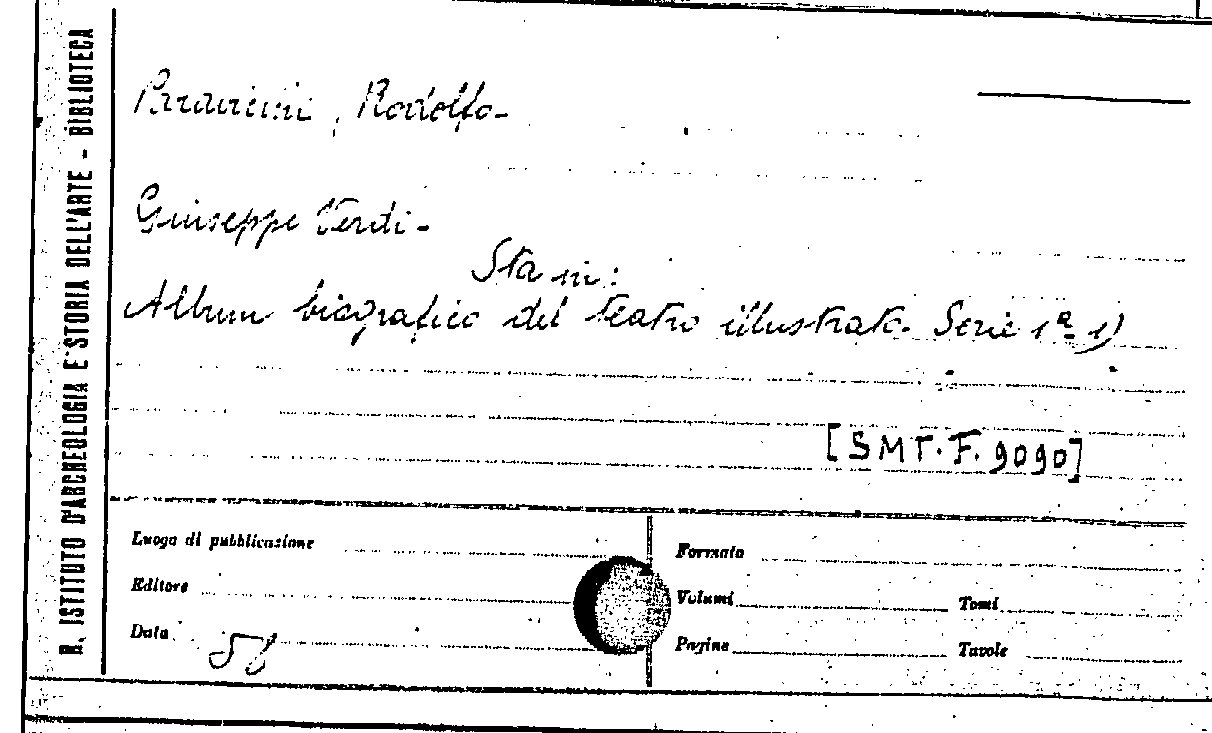 R. ISTITUTO D'ARCHEOLOGIA E STORIA DELL'ARTE - BIBLIOTECA
Paravicini, Rodolfo-
Giuseppe Verdi-
Sta in:
Album biografico del teatro illustrato. Serie 1ª 1)
[SMT. F. 9090]
Luogo di pubblicazione
Editore
Data
Formato
Volumi Tomi
Pagine Tavole